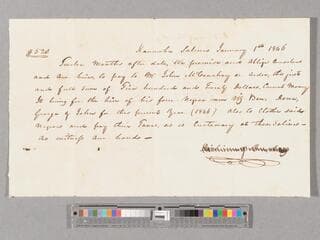 $520 Kanawha Salines January 1st 1846
Twelve Months after date, We promise and oblige ourselves
and our heirs to pay to Mr John McConihay or order, the just
and full sum of Five hundred and Twenty Dollars. Current Money
It being for the hire of his four Negro men Viz Ben. Dover,
George & John for the present Year (1846) Also to Clothe said
Negroes and pay their Taxes, as is Customary at these Salines
As witness our hands